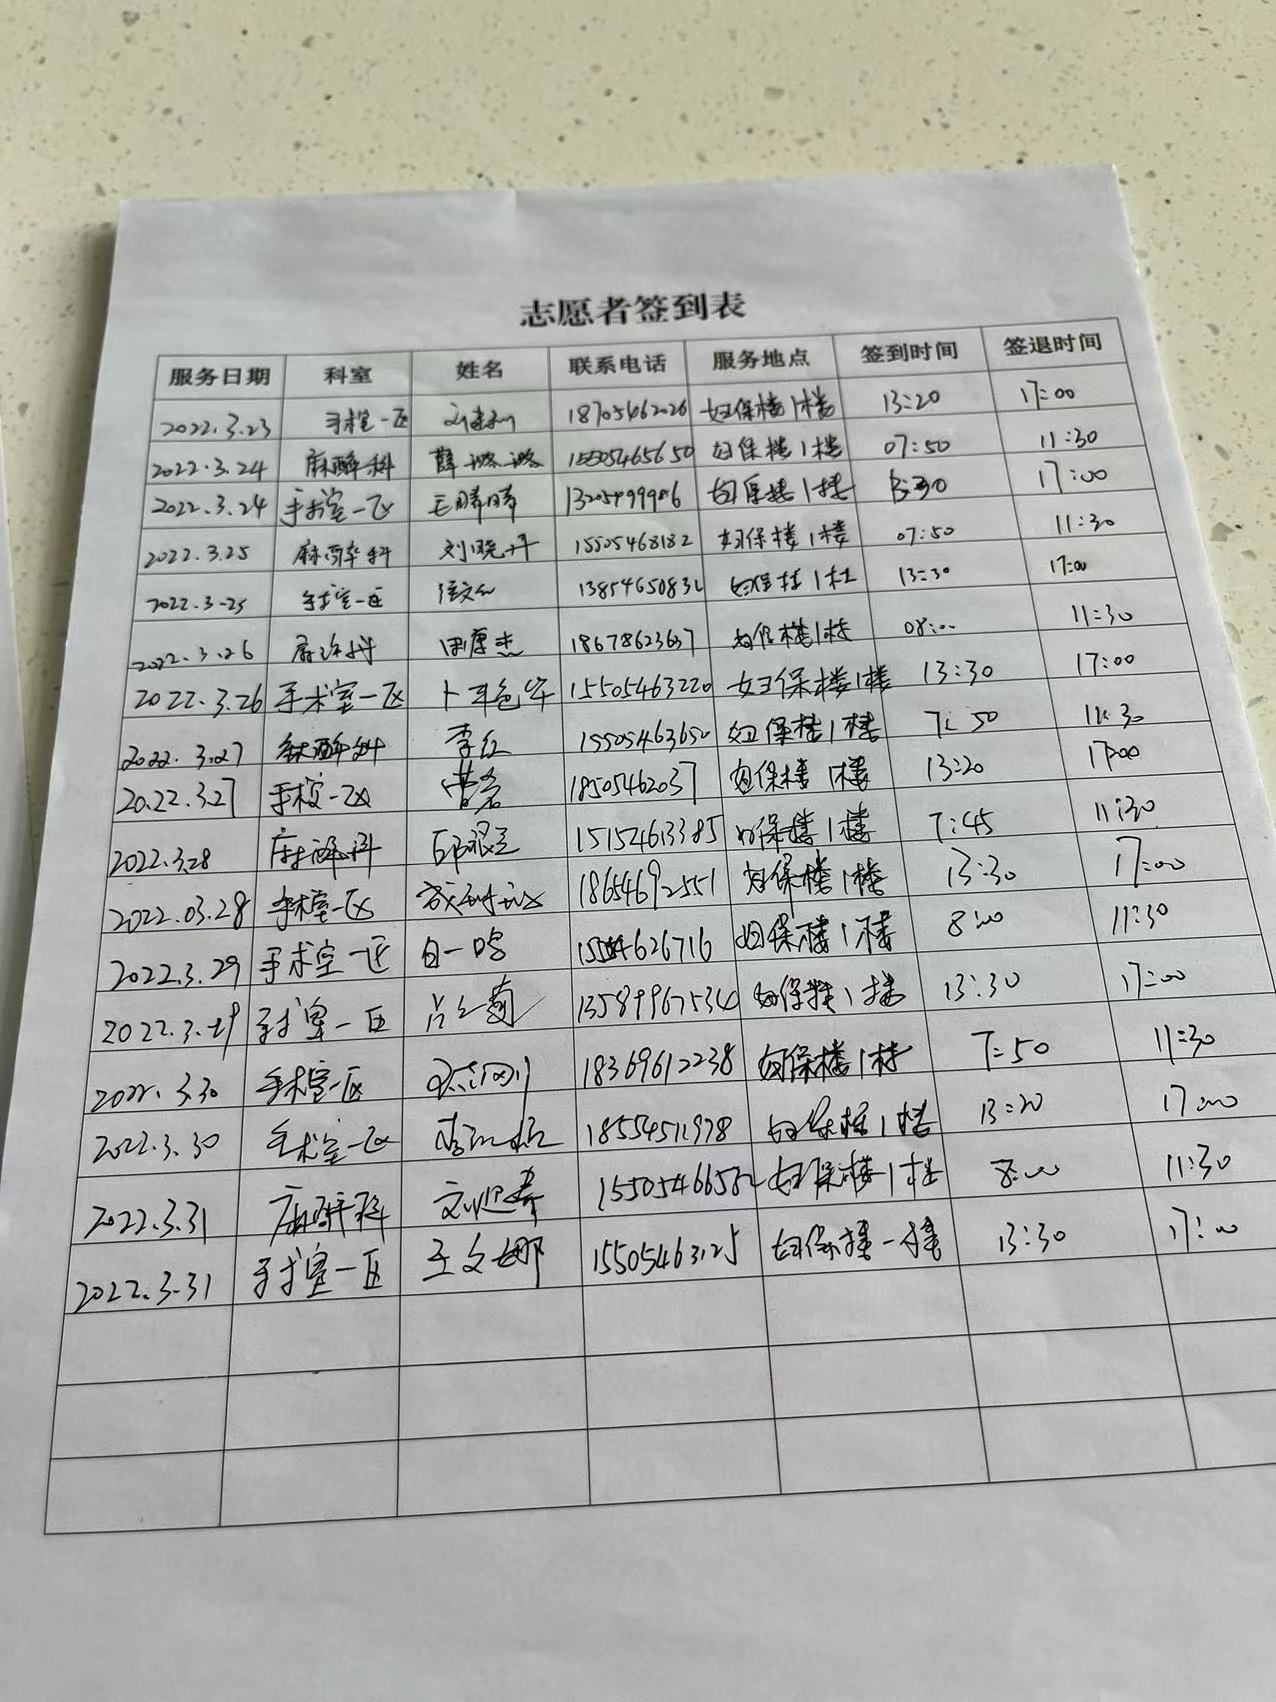 志愿者签到表
服务日期 科室 姓名 联系电话 服务地点 签到时间 签退时间
2022.3.23 手术室一区 18705462026 妇保楼1楼 13:20 17:00
2022.3.24 麻醉科 薛璐璐 15505465650 妇保楼1楼 07:50 11:30
2022.3.24 手术室一区 王晴晴 妇保楼1楼 13:30 17:00
2022.3.25 麻醉科 刘晓丹 15505468182 妇保楼1楼 07:50 11:30
2022.3.25 手术室一区 13854650832 妇保楼1楼 13:30 17:00
2022.3.26 麻醉科 田康杰 18678623607 妇保楼1楼 08:00 11:30
2022.3.26 手术室一区 15505463220 妇保楼1楼 13:30 17:00
2022.3.27 麻醉科 李红 15505463650 妇保楼1楼 7:50 11:30
2022.3.27 手术室一区 18505462037 妇保楼1楼 13:20 17:00
2022.3.28 麻醉科 151524613385 妇保楼1楼 7:45 11:30
2022.03.28 手术室一区 18654692551 妇保楼1楼 13:30 17:00
2022.3.29 手术室一区 白一鸣 15554626716 妇保楼1楼 8:00 11:30
2022.3.29 手术室一区 13589967534 妇保楼1楼 13:30 17:00
2022.3.30 手术室一区 18369612238 妇保楼1楼 7:50 11:30
2022.3.30 手术室一区 18554511978 妇保楼1楼 13:20 17:00
2022.3.31 麻醉科 妇保楼1楼 8:00 11:30
2022.3.31 手术室一区 王文娜 15505463125 妇保楼一楼 13:30 17:00